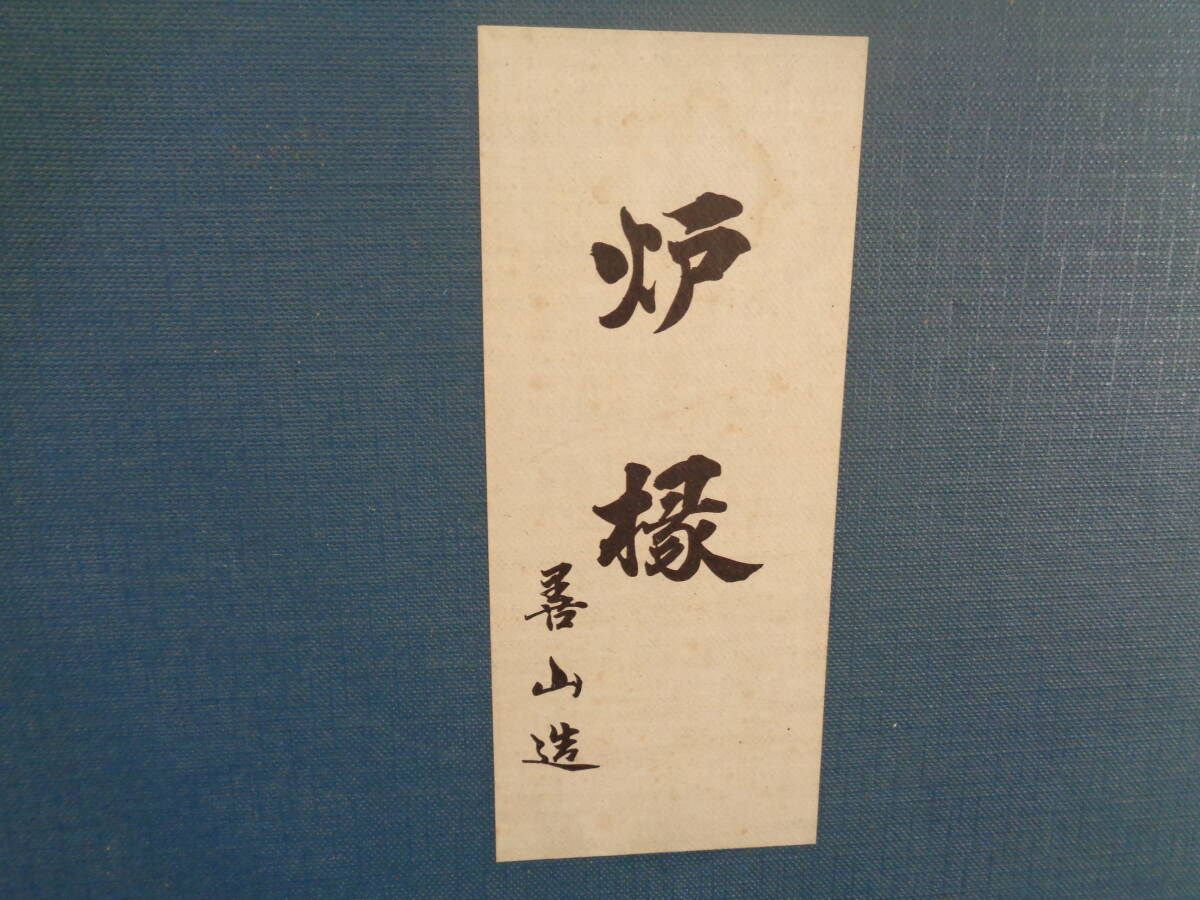 炉椽
善山造